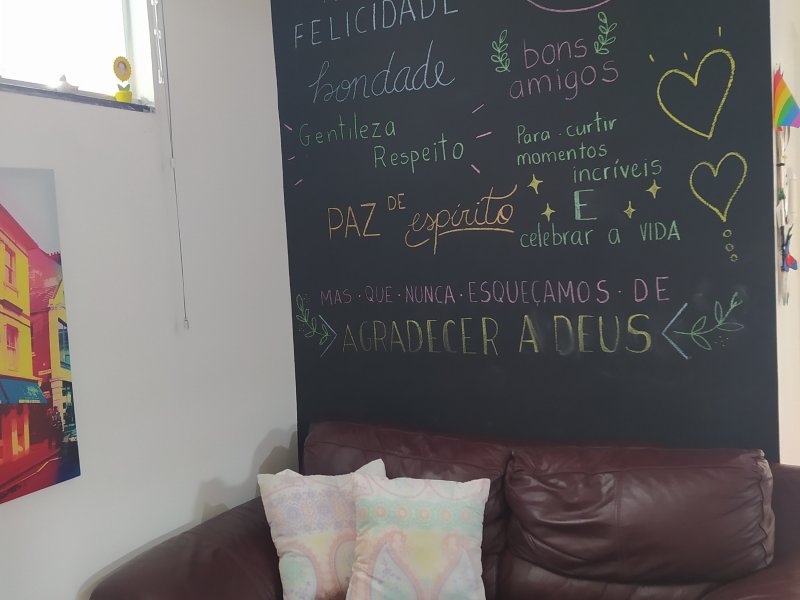 FELICIDADE
bondade
bons
amigos
Gentileza
Respeito
Para curtir
momentos
incríveis
PAZ DE espírito
E
celebrar a VIDA
MAS·QUE·NUNCA·ESQUEÇAMOS·DE
AGRADECER A DEUS